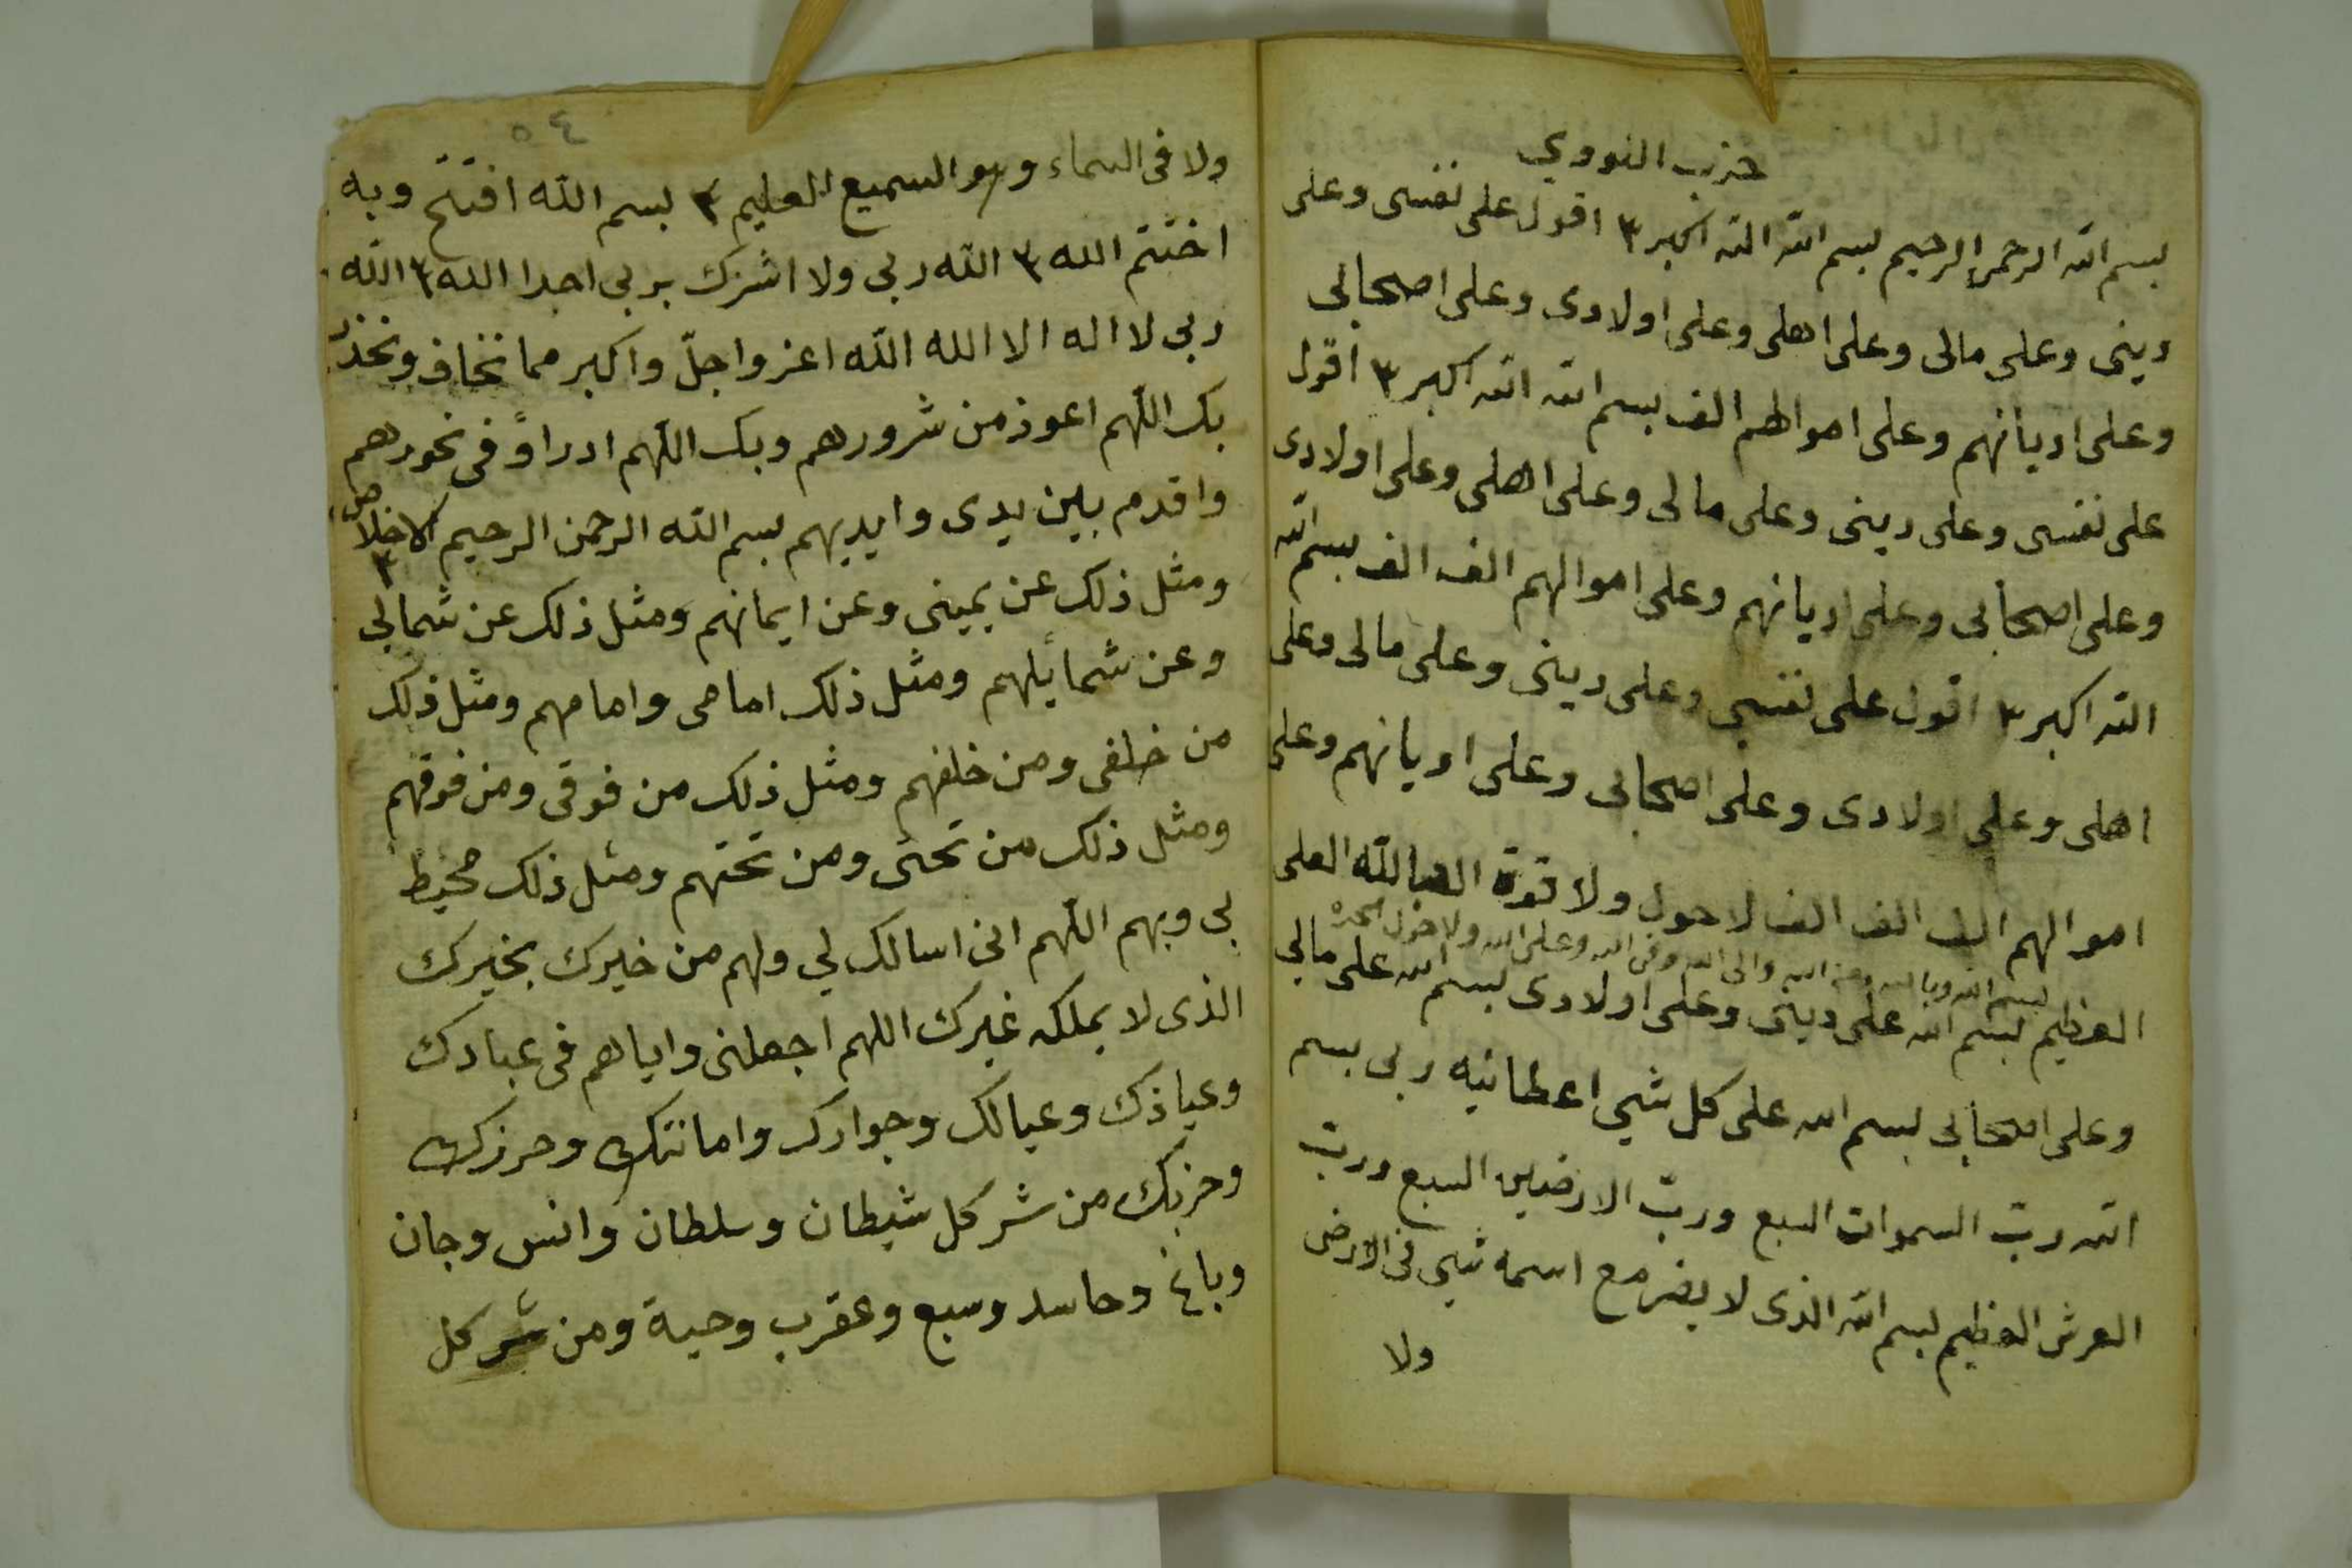 حزب النووي
بسم الله الرحمن الرحيم بسم الله الله اكبر ٣ اقول على نفسى وعلى
دينى وعلى مالى وعلى اهلى وعلى اولادى وعلى اصحابى
وعلى اديانهم وعلى اموالهم الف بسم الله الله اكبر ٣ اقول
على نفسى وعلى دينى وعلى مالى وعلى اهلى وعلى اولادى
وعلى اصحابى وعلى اديانهم وعلى اموالهم الف الف بسم الله
الله اكبر ٣ اقول على نفسى وعلى دينى وعلى مالى وعلى
اهلى وعلى اولادى وعلى اصحابى وعلى اديانهم وعلى
اموالهم الف الف الف لا حول ولا قوة الا بالله العلى
بسم الله وبالله ومن الله والى الله وفى الله وعلى الله ولا حول
العظيم بسم الله على دينى وعلى اولادى بسم الله على مالى
وعلى اصحابى بسم الله على كل شي اعطانيه ربى بسم
الله ربّ السموات السبع وربّ الارضين السبع وربّ
العرش العظيم بسم الله الذى لا يضر مع اسمه شي فى الارض
ولا
٥٤
ولا فى السماء وهو السميع العليم ٣ بسم الله افتتح وبه
اختتم الله ٣ الله ربى ولا اشرك بربى احدا الله ٣ الله
ربى لا اله الا الله الله اعز واجلّ واكبر مما نخاف ونحذر
بك اللهم اعوذ من شرورهم وبك اللهم ادراؤ فى نحورهم
واقدم بين يدى وايديهم بسم الله الرحمن الرحيم الاخلاص ٣
ومثل ذلك عن يمينى وعن ايمانهم ومثل ذلك عن شمالي
وعن شمائيلهم ومثل ذلك امامى وامامهم ومثل ذلك
من خلفى ومن خلفهم ومثل ذلك من فوقى ومن فوقهم
ومثل ذلك من تحتى ومن تحتهم ومثل ذلك محيط
بي وبهم اللهم انى اسالك لي ولهم من خيرك بخيرك
الذى لا يملكه غيرك اللهم اجعلنى واياهم فى عبادك
وعياذك وعيالك وجوارك وامانتك وحرزك
وحزبك من شر كل شيطان وسلطان وانس وجان
وباغ وحاسد وسبع وعقرب وحية ومن شر كل